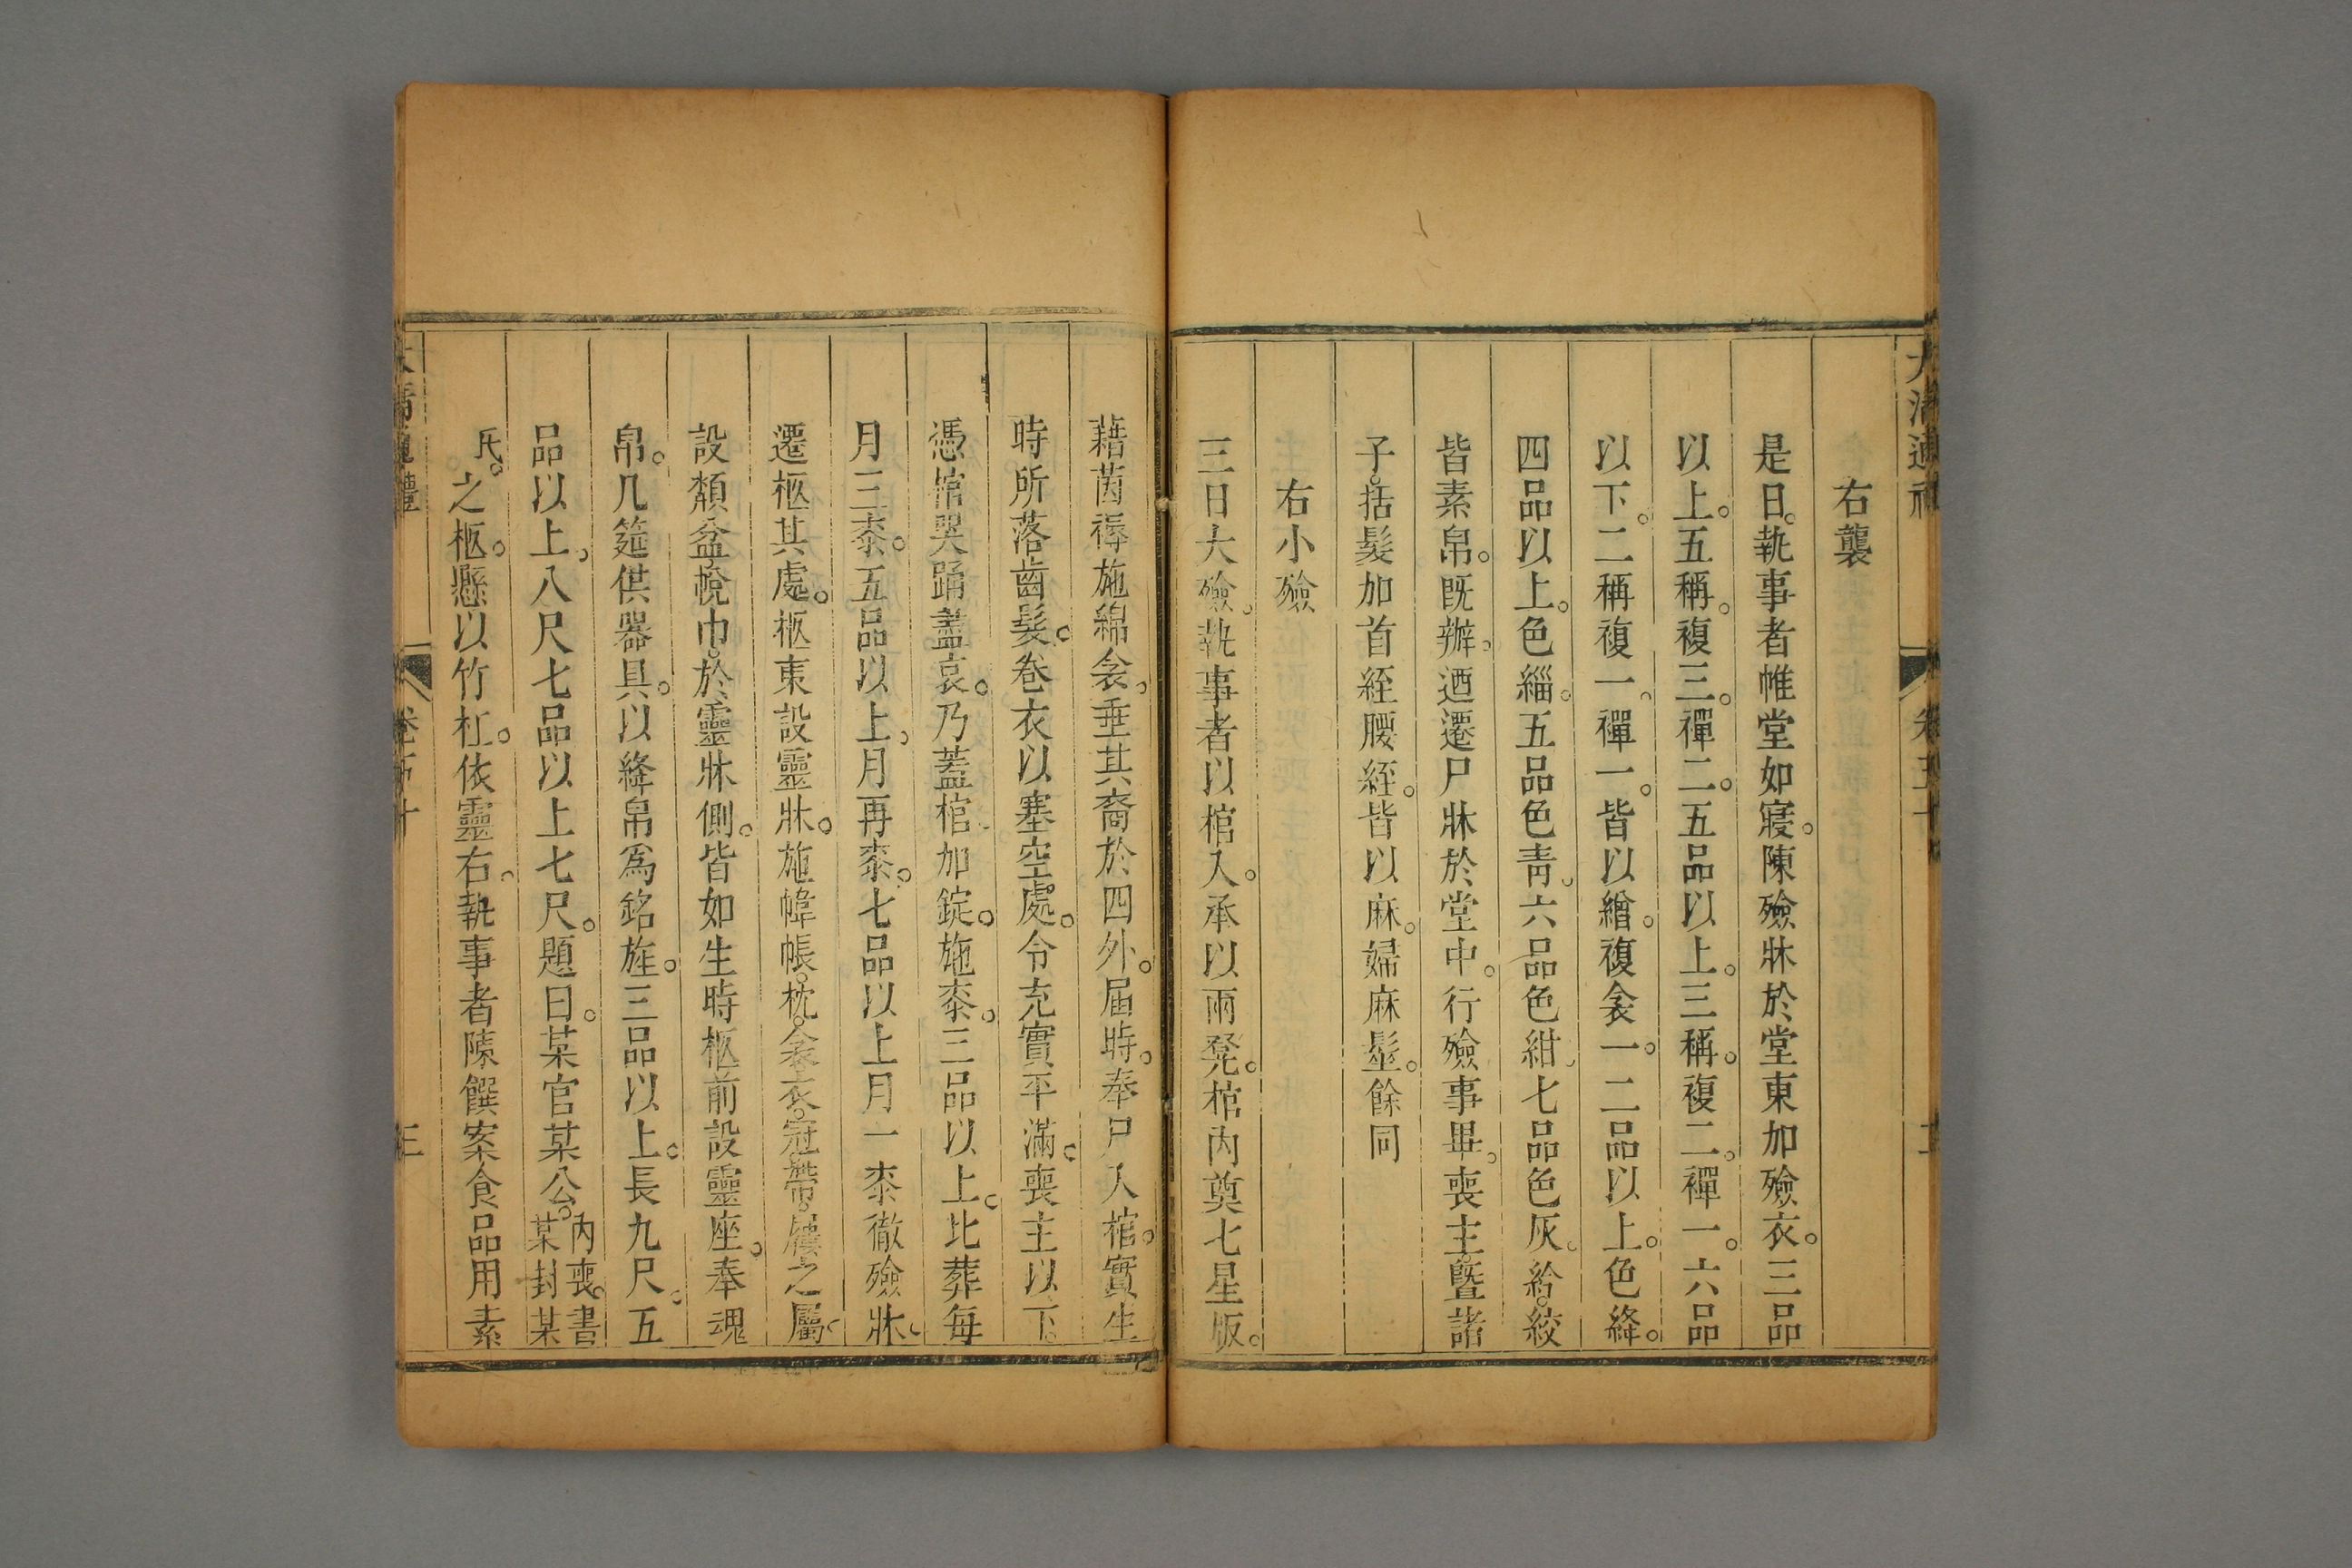 大清通禮 卷五十 二
右襲
是日。執事者帷堂如寢。陳殮牀於堂東加殮衣。三品
以上。五稱。複三。襌二。五品以上。三稱。複二。襌一。六品
以下。二稱複一。襌一。皆以繒。複衾一。二品以上。色絳。
四品以上。色緇。五品色青。六品色紺。七品色灰。給。絞
皆素帛。既辦。迺遷尸牀於堂中。行殮事畢。喪主暨諸
子。括髮加首絰腰絰。皆以麻。婦麻髽。餘同
右小殮
三日大殮。執事者以棺入。承以兩凳。棺內奠七星版。
藉茵褥施綿衾。垂其裔於四外。屆時。奉尸入棺。實生
時所落齒髮。卷衣以塞空處。令充實平滿。喪主以下。
憑棺哭踊盡哀。乃蓋棺。加錠。施桼。三品以上。比葬每
月三桼。五品以上。月再桼。七品以上月一桼徹殮牀。
遷柩其處。柩東設靈牀。施幃帳。枕。衾。衣。冠。帶。屨之屬。
設頮盆。帨巾。於靈牀側。皆如生時柩前設靈座。奉魂
帛。几筵供器具。以絳帛爲銘旌。三品以上。長九尺。五
品以上。八尺七品以上七尺。題曰。某官某公。內喪。書某封某
氏。之柩。懸以竹杠。依靈右。執事者陳饌案食品用素
大清通禮 卷五十 三